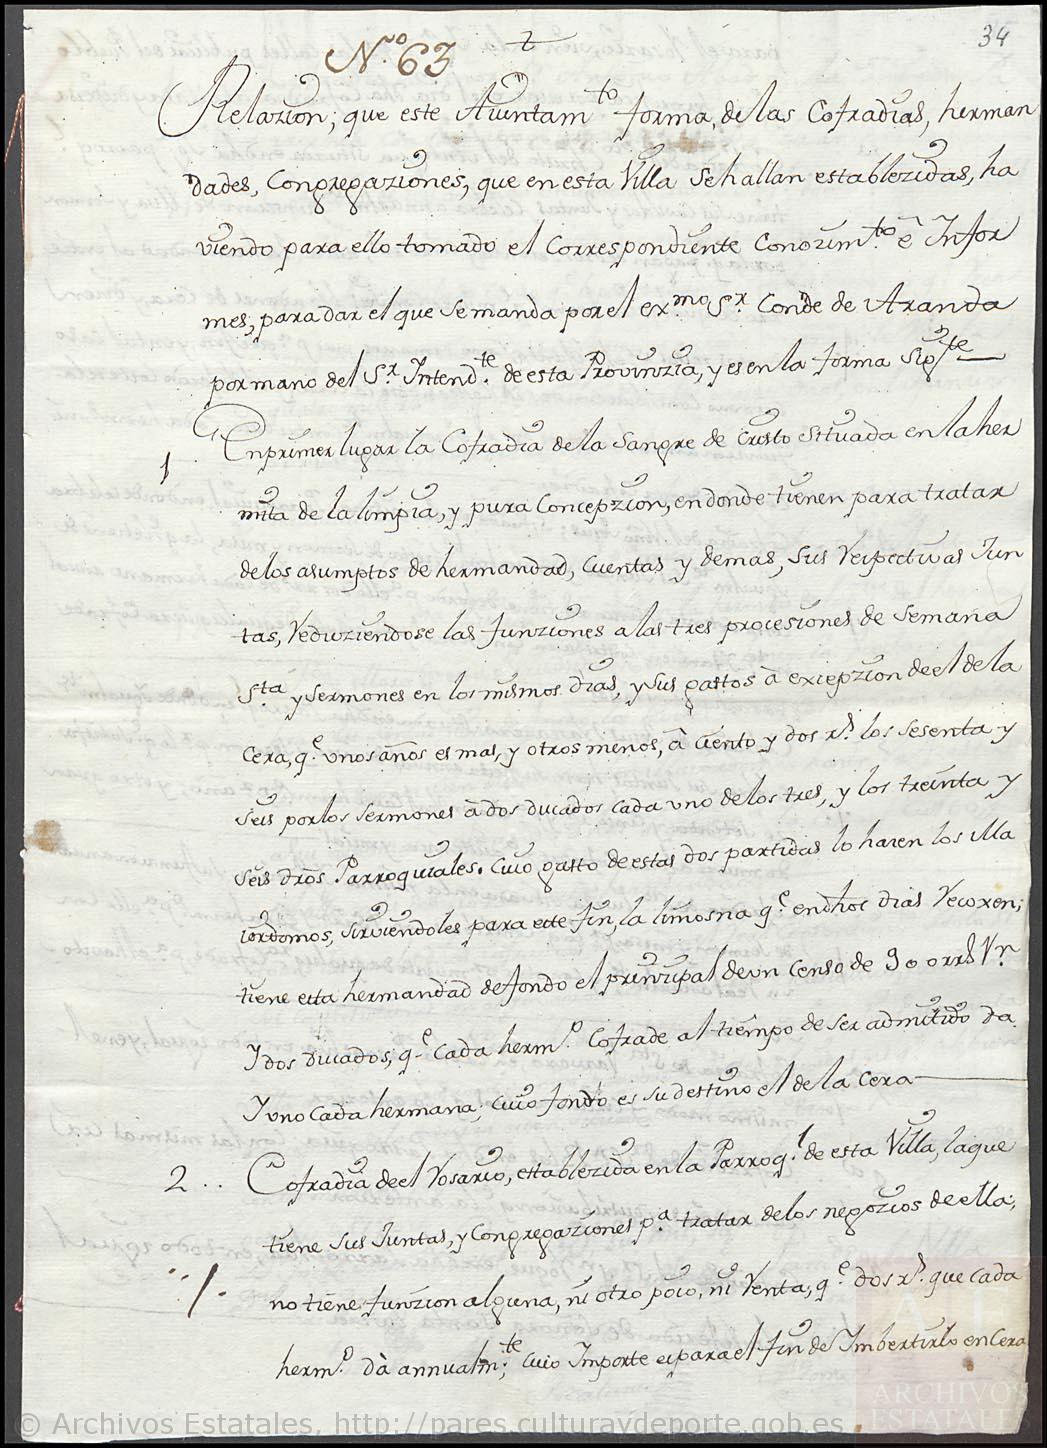 34
N.º 63
Relazion, que este Aiuntam.to forma, de las Cofradias, herman
dades, Congregaziones, que en esta Villa se hallan establezidas, ha
viendo para ello tomado el Correspondiente Conozim.to è Infor
mes, para dar el que se manda por el ex.mo S.r Conde de Aranda
por mano del S.r Intend.te de esta Provinzia, y es en la forma Sig.te
1 En primer lugar la Cofradia de la Sangre de Cristo Situada en la her
mita de la limpia, y pura Concepzion, en donde tienen para tratar
de los asumptos de hermandad, Cuentas y demas, Sus Respectivas Jun
tas, Reduziendose las funziones a las tres procesiones de Semana
S.ta y Sermones en los mismos dias, y sus gastos à excepzion de el de la
Cera, q.e unos años es mas, y otros menos, à Ciento y dos r.s los Sesenta y
Seis por los Sermones à dos ducados cada uno de los tres, y los treinta y
Seis dros Parroquiales. Cuio gasto de estas dos partidas lo hazen los Ma
iordomos, sirviendoles para este fin, la limosna q.e en dhos dias Recoxen;
tiene esta hermandad de fondo el prinzipal de un Censo de 900 rrs V.n
I dos ducados, q.e Cada herm.o Cofrade al tiempo de ser admitido da
I uno Cada hermana; Cuio fondo es su destino el de la Cera
2 .. Cofradia de el Rosario, establezida en la Parroq.l de esta Villa, la que
tiene Sus Juntas, y Congregaziones p.a tratar de los negozios de ella;
no tiene funzion alguna, ni otro poio, ni Renta; q.e dos r.s que Cada
herm.o dà annualm.te, Cuio Importe es para el fin de Imbertirlo en Cera
© Archivos Estatales, http://pares.culturaydeporte.gob.es
AE
ARCHIVOS
ESTATALES